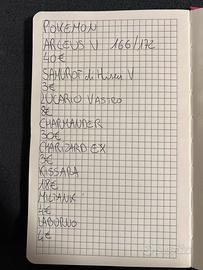 POKEMON
ARCEUS V 166/172
40€
SAMUROT di Hisui V
3€
LUCARIO VASTRO
8€
CHARMANDER
30€
CHARIZARD EX
3€
KISSARA
18€
MILTANK
4€
LABURNO
4€